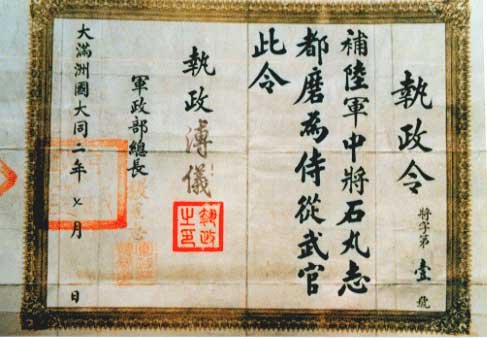 執政令
將字第壹號
補陸軍中將石丸志
都磨為侍從武官
此令
執政溥儀
執政之印
軍政部總長
大滿洲國大同二年七月 日